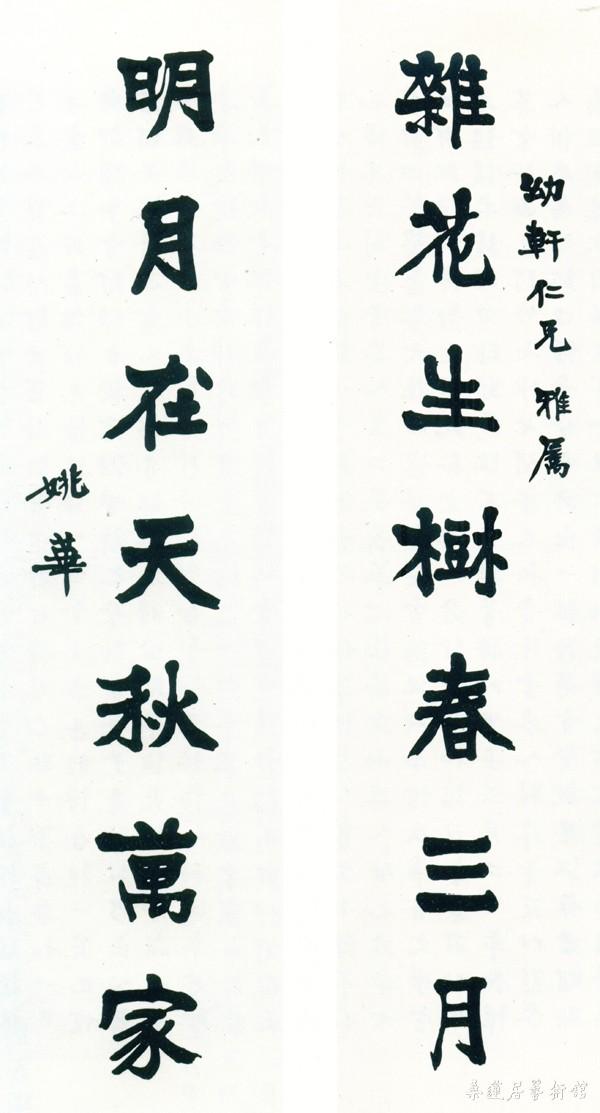 幼軒仁兄雅屬
雜花生樹春三月
明月在天秋萬家
姚華
桑蓮居藝術館